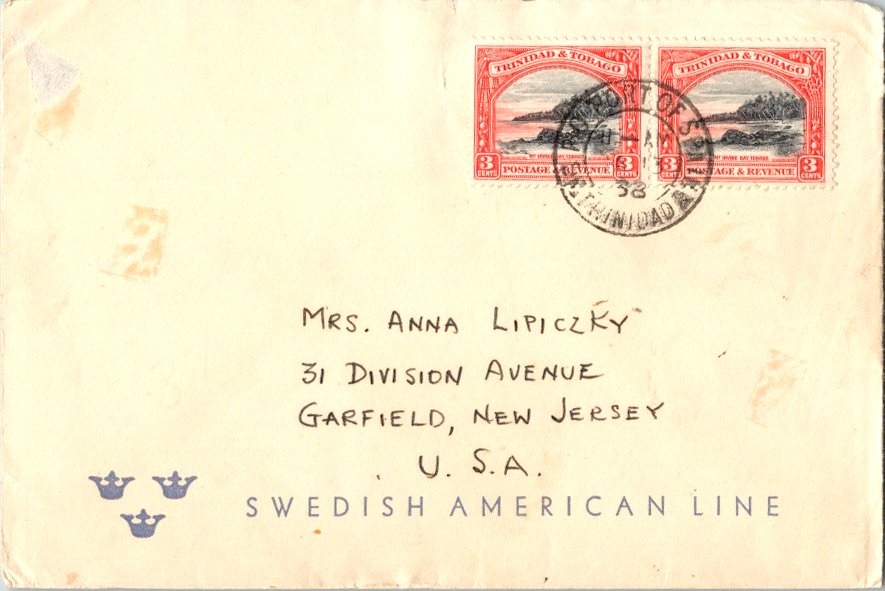 TRINIDAD & TOBAGO
MT IRVINE BAY, TOBAGO
3 CENTS POSTAGE & REVENUE 3 CENTS
TRINIDAD & TOBAGO
MT IRVINE BAY, TOBAGO
3 CENTS POSTAGE & REVENUE 3 CENTS
PORT OF SPAIN
38
TRINIDAD
MRS. ANNA LIPICZKY
31 DIVISION AVENUE
GARFIELD, NEW JERSEY
U. S. A.
SWEDISH AMERICAN LINE